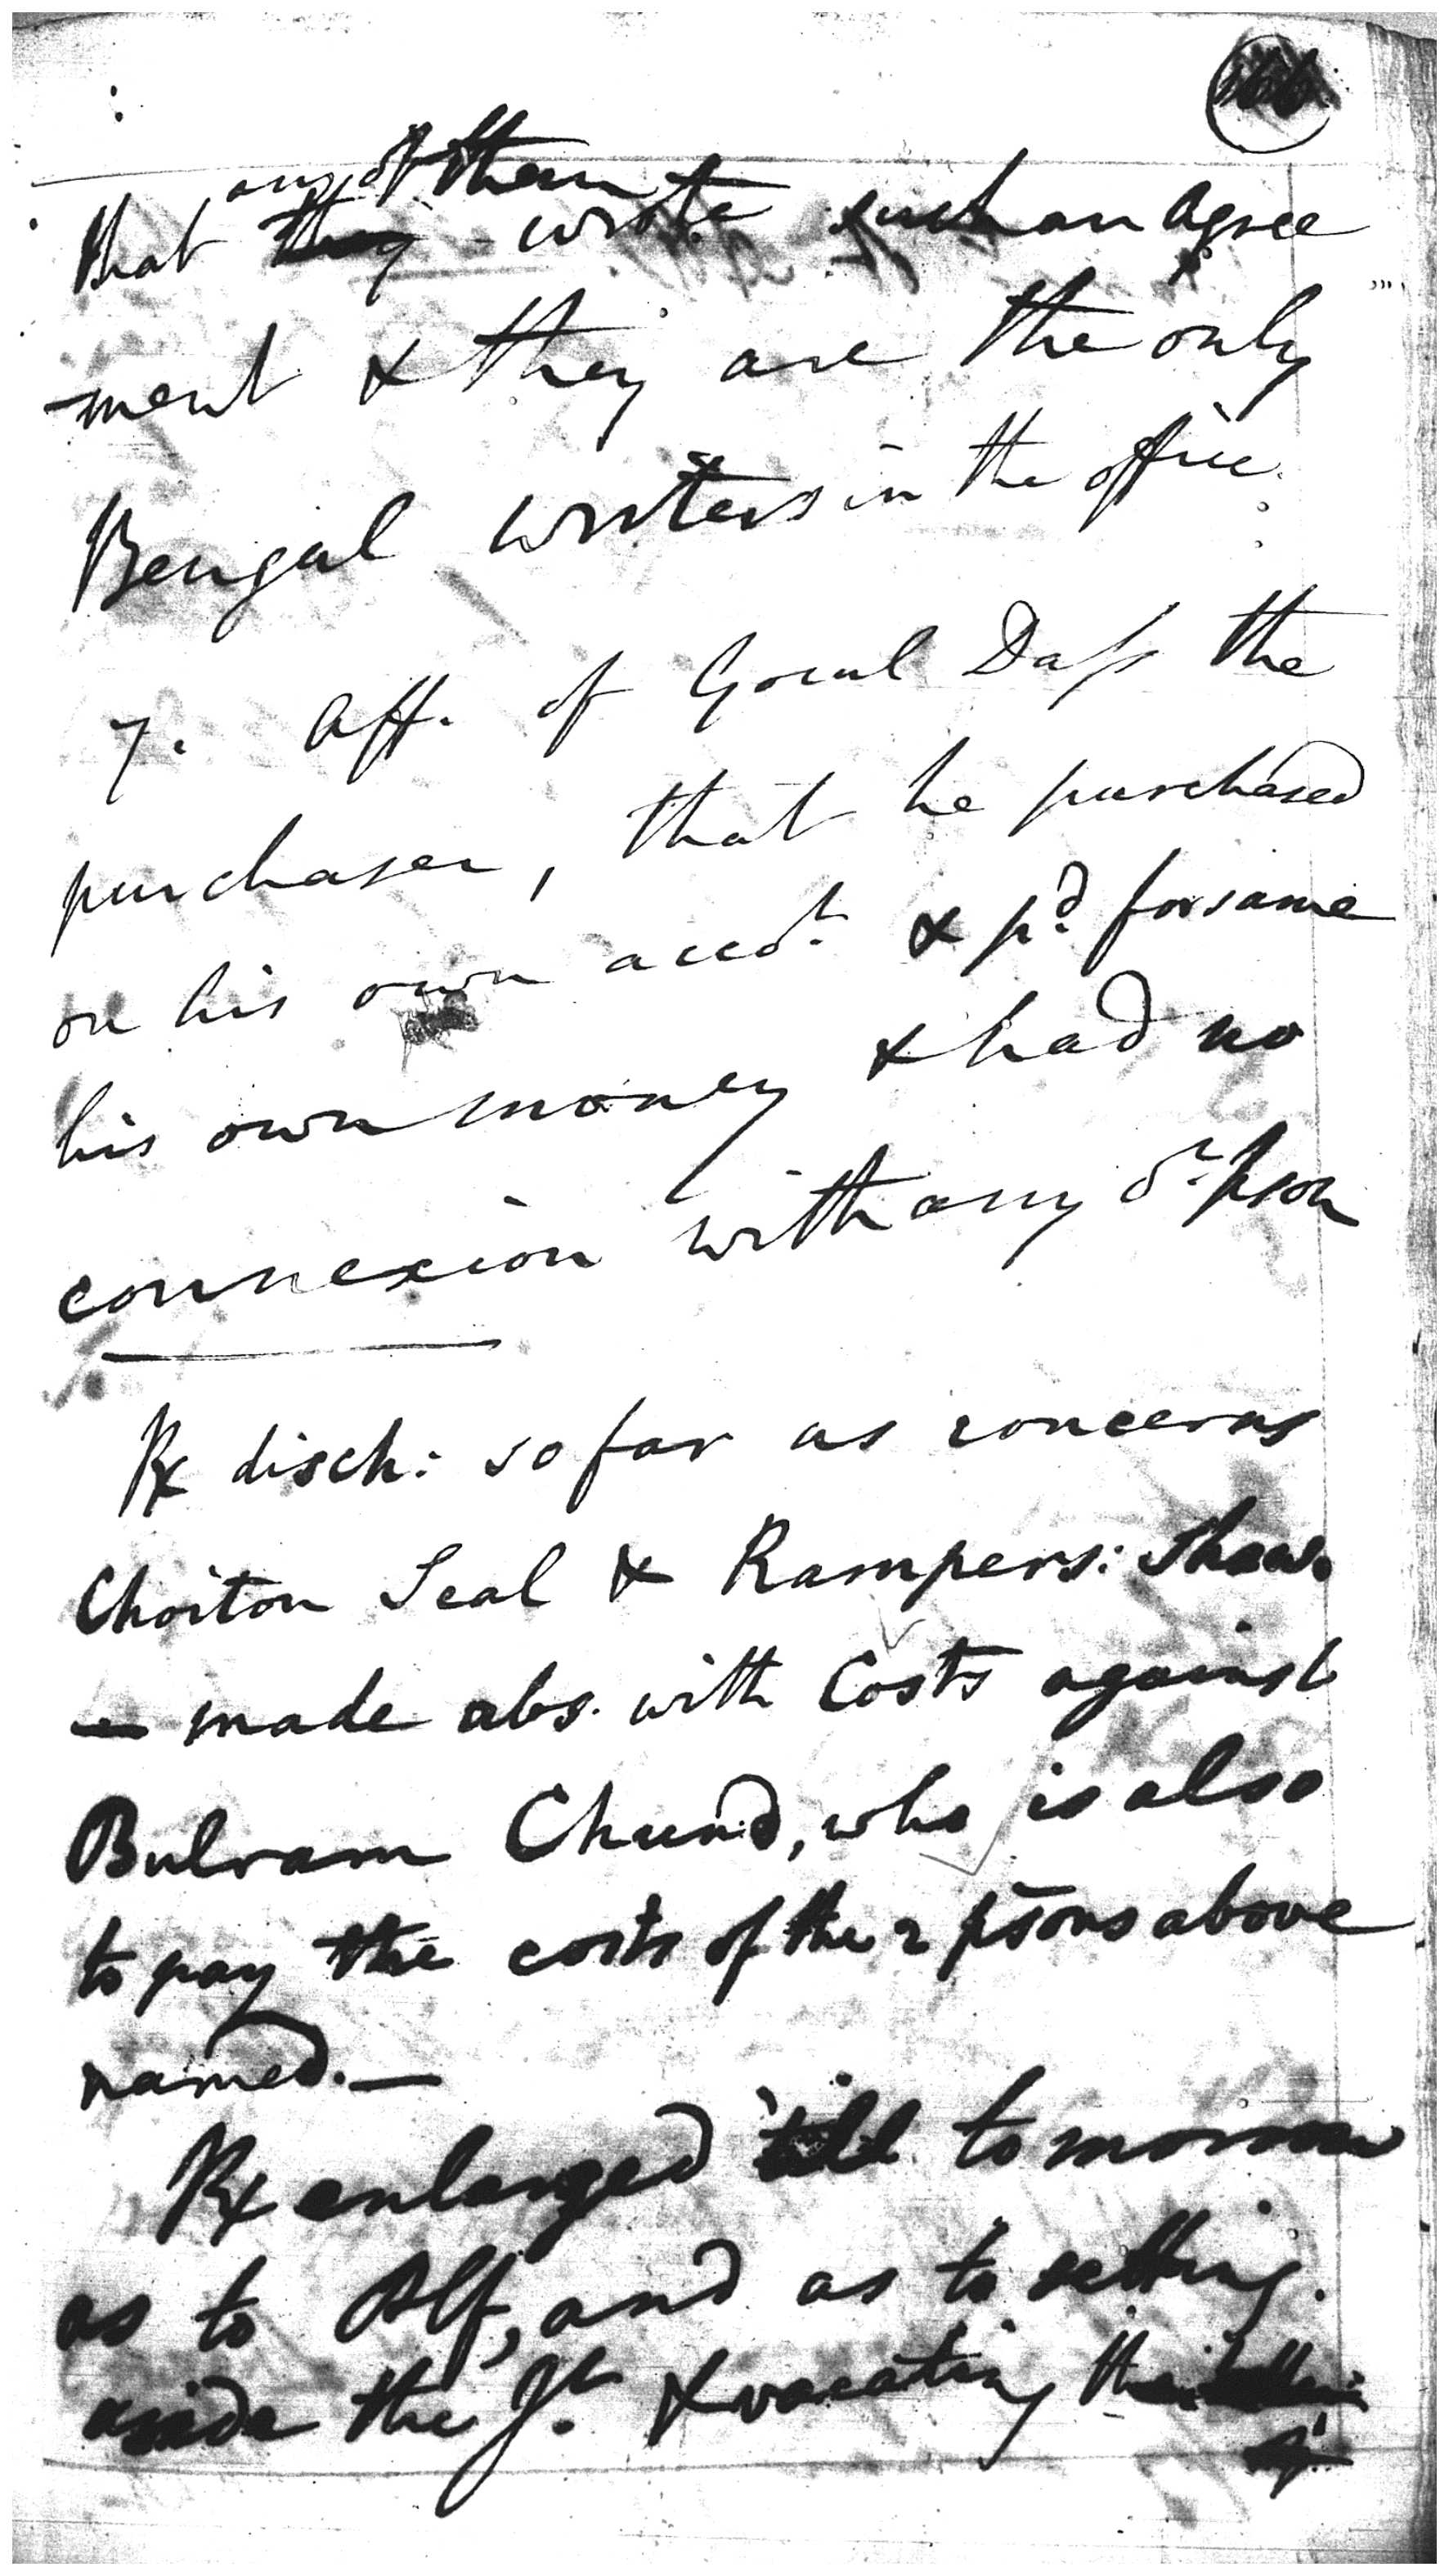 any of them
that they wrote such an Agree
ment & they are the only
Bengal writers in the office.
7. Aff. of Gocul Dass the
purchaser, that he purchased
on his own accot. & pd. for same
his own money & had no
connexion with any or. pson
Rx disch: so far as concerns
Choiton Seal & Rampers: Shaw.
— made abs. with Costs against
Bulram Chund, who is also
to pay the costs of the 2 psons above
named. —
Rx enlarged till tomorrow
as to Plf, and as to setting
aside the Jt. & vacating the